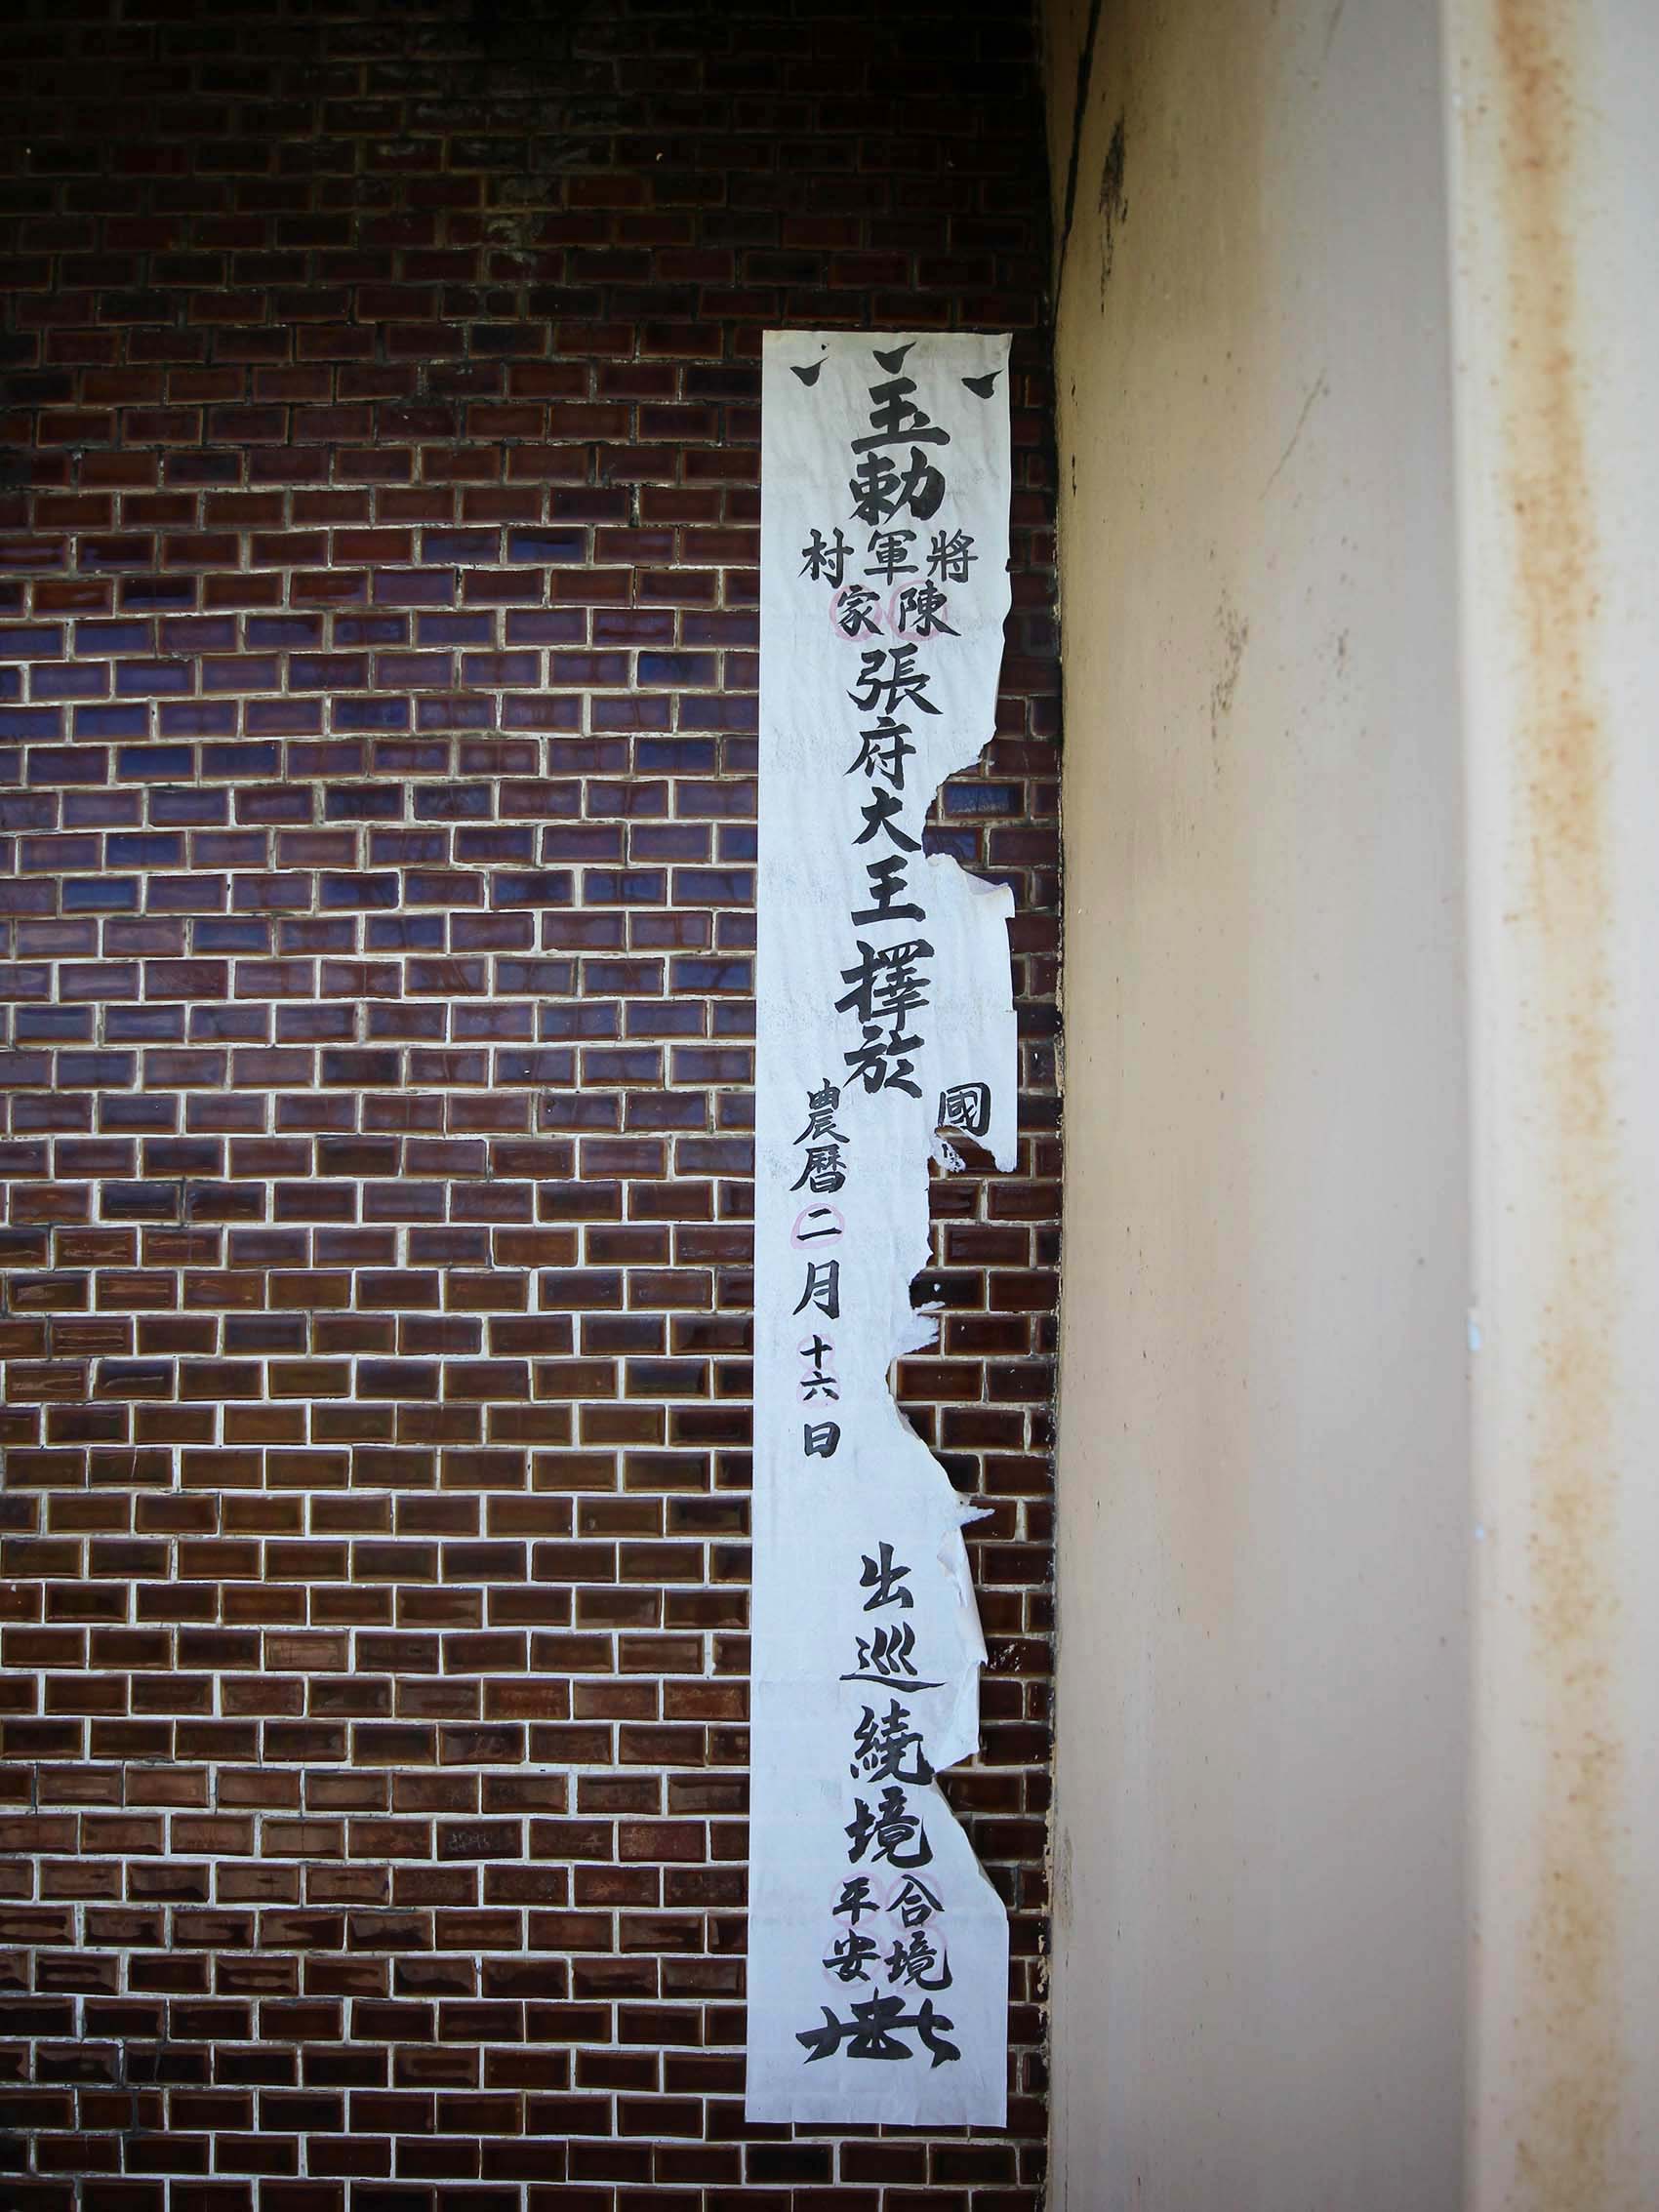 玉勅
將軍村
陳家
張府大王擇於
國
農曆二月十六日
出巡繞境
合境
平安